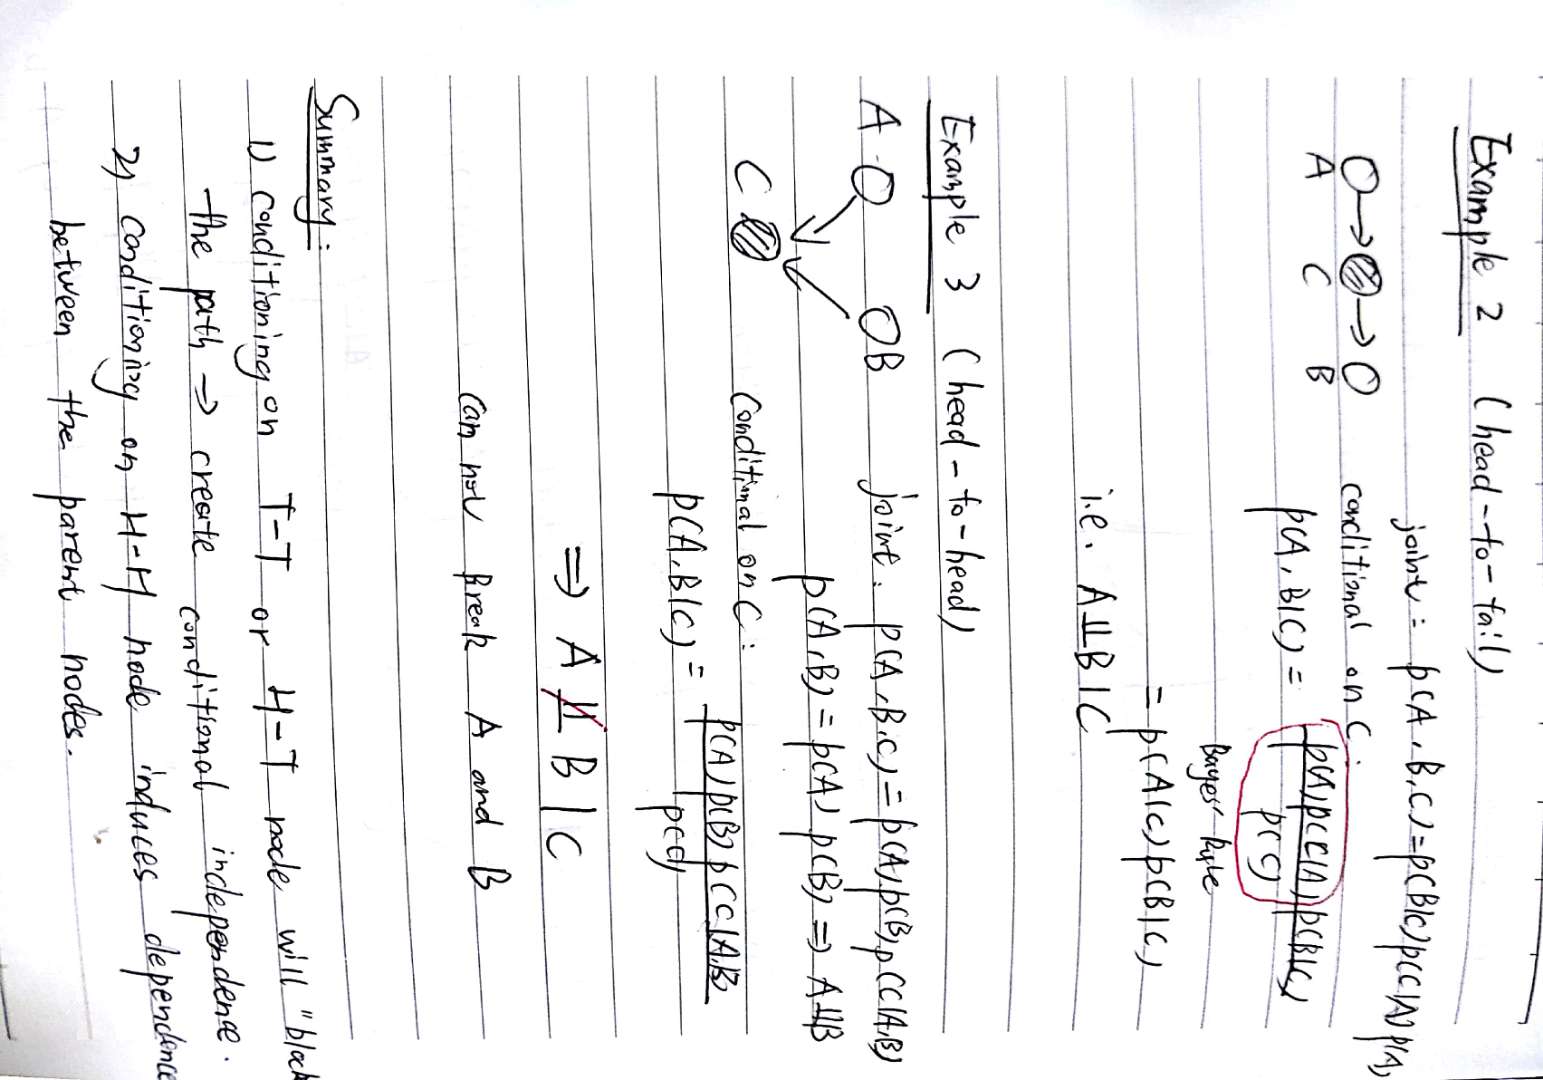 Example 2 (head-to-tail)
joint: p(A,B,C)=p(B|C)p(C|A)p(A)
A C B
conditional on C:
p(A,B|C) = p(A)p(C|A)p(B|C) / p(C)
Bayes' Rule
= p(A|C)p(B|C)
i.e. A⫫B|C
Example 3 (head-to-head)
A B joint: p(A,B,C)=p(A)p(B)p(C|A,B)
p(A,B)=p(A)p(B) ⇒ A⫫B
C conditional on C:
p(A,B|C) = p(A)p(B)p(C|A,B) / p(C)
⇒ A ⫫̸ B|C
can not break A and B
Summary:
1) conditioning on T-T or H-T node will "block
the path ⇒ create conditional independence.
2) conditioning on H-H node induces dependence
between the parent nodes.